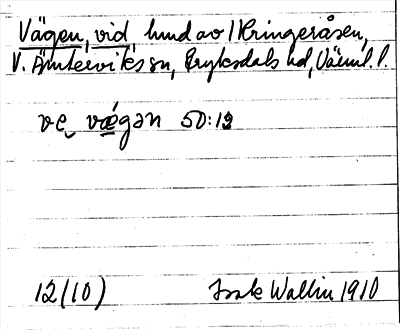 Vägen, vid hmd av Kringeråsen,
V. Ämterviks sn, Fryksdals hd, Värml. l.
ve vægan 50:12
12(10) Isak Wallin 1910